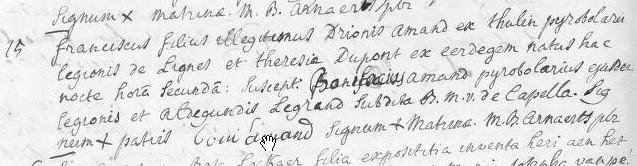 Signum x Matrinæ. M. B. Arnaerts pbr
15 Franciscus filius illegitimus Drionis Amand ex thulin pyrobolarii
legionis de Lignes et theresiæ Dupont ex eerdegem natus hac
nocte horâ secundâ: suscept: Bonifacius Amand pyrobolarius ejusdem
legionis et Aldegundis Legrand subdita B. m. v. de Capella. Sig
num x patris amand signum x Matrinæ. M. B. Arnaerts pbr
filia exposititia inventa heri aen het